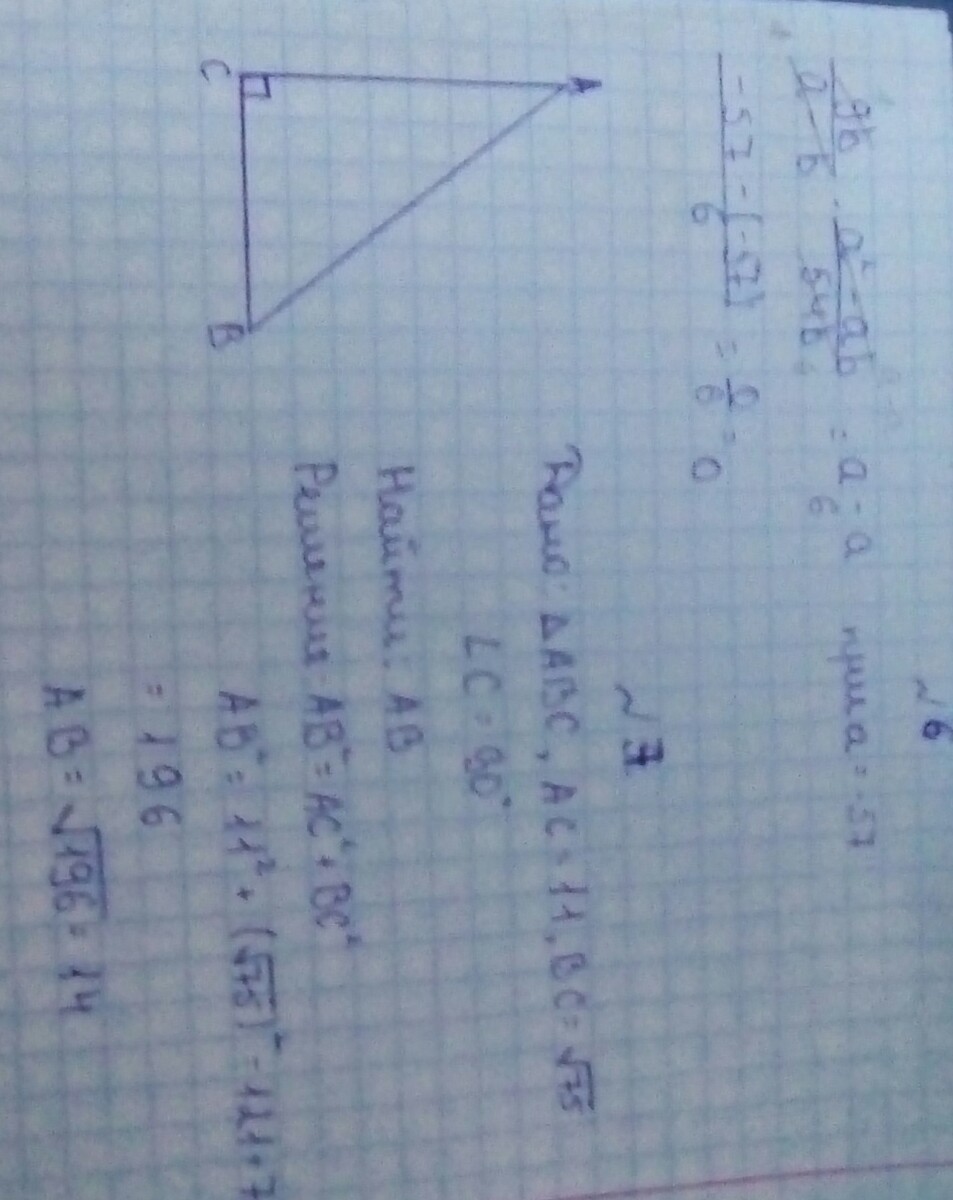 ~ 6
9b/(a - b) · (a² - ab)/54b = (a - a)/6 при a = -57
(-57 - (-57))/6 = 0/6 = 0
~ 7
A
C
B
Дано: ΔABC, AC = 11, BC = √75
∠C = 90°
Найти: AB
Решения: AB² = AC² + BC²
AB² = 11² + (√75)² = 121 + 7
= 196
AB = √196 = 14